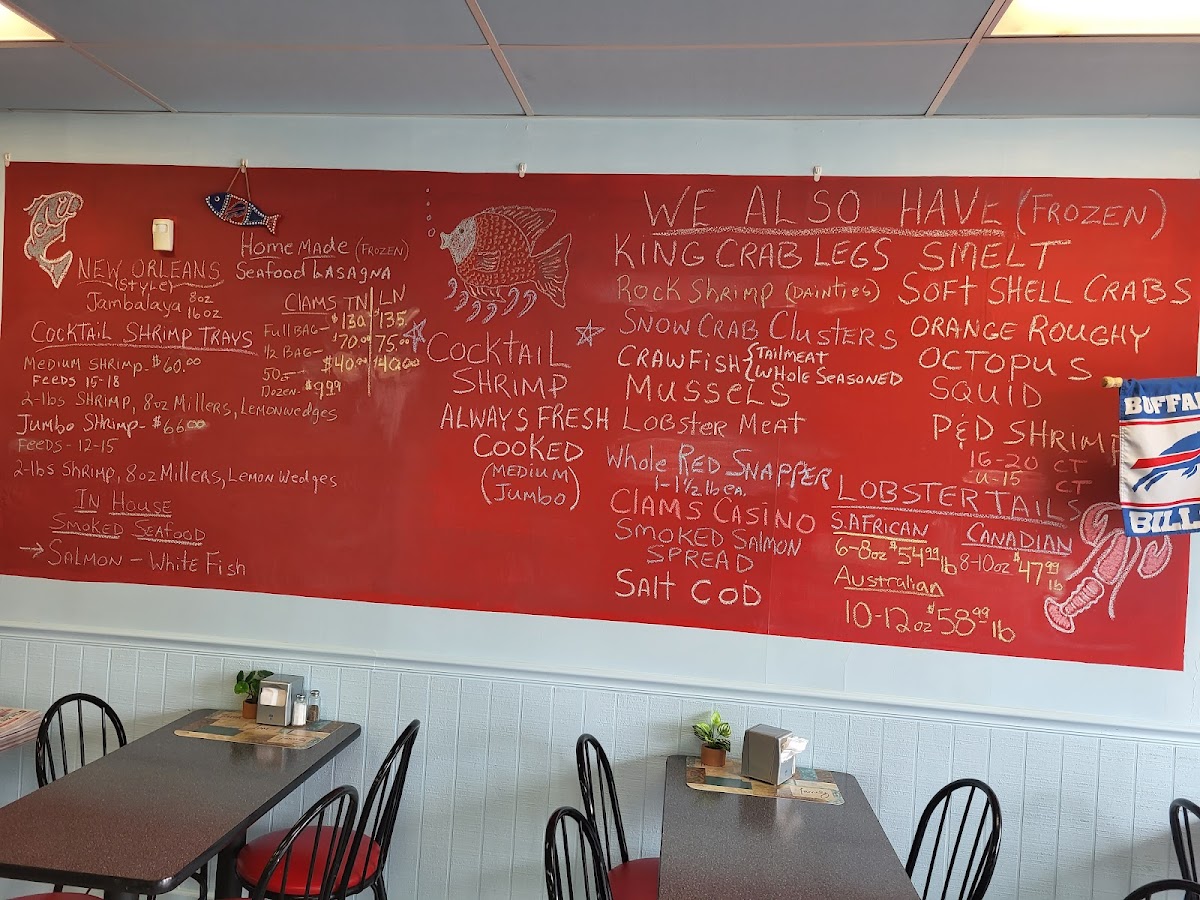 NEW ORLEANS
(STYLE)
Jambalaya 8oz
16oz
COCKTAIL SHRIMP TRAYS
MEDIUM SHRIMP - $60.00
FEEDS 15-18
2-lbs SHRIMP, 8oz Millers, Lemon wedges
Jumbo Shrimp - $66.00
FEEDS - 12-15
2-lbs SHRIMP, 8oz Millers, Lemon Wedges
IN HOUSE
SMOKED SEAFOOD
→ SALMON - White Fish
Home MADE (FROZEN)
Seafood LASAGNA
CLAMS TN LN
Full BAG - $130 $135
1/2 BAG - $70.00 75.00
50 - $40.00 40.00
Dozen - $9.99
COCKTAIL
SHRIMP
ALWAYS FRESH
COOKED
(MEDIUM)
(Jumbo)
WE ALSO HAVE (FROZEN)
KING CRAB LEGS
Rock Shrimp (DAINTIES)
SNOW CRAB Clusters
CRAWFISH {Tailmeat
WHOLE SEASONED
MUSSELS
LObster MEAT
Whole RED SNAPPER
1-1 1/2 lb ea.
CLAMS CASINO
SMOKED SALMON
SPREAD
SALT COD
SMELT
SOFT SHELL CRABS
ORANGE ROUGHY
OCTOPUS
SQUID
P&D SHRIMP
16-20 CT
U-15 CT
LOBSTER TAILS
S.AFRICAN
6-8oz $54.99 lb
CANADIAN
8-10oz $47.99 lb
Australian
10-12oz $58.99 lb
BUFFA
BILLS